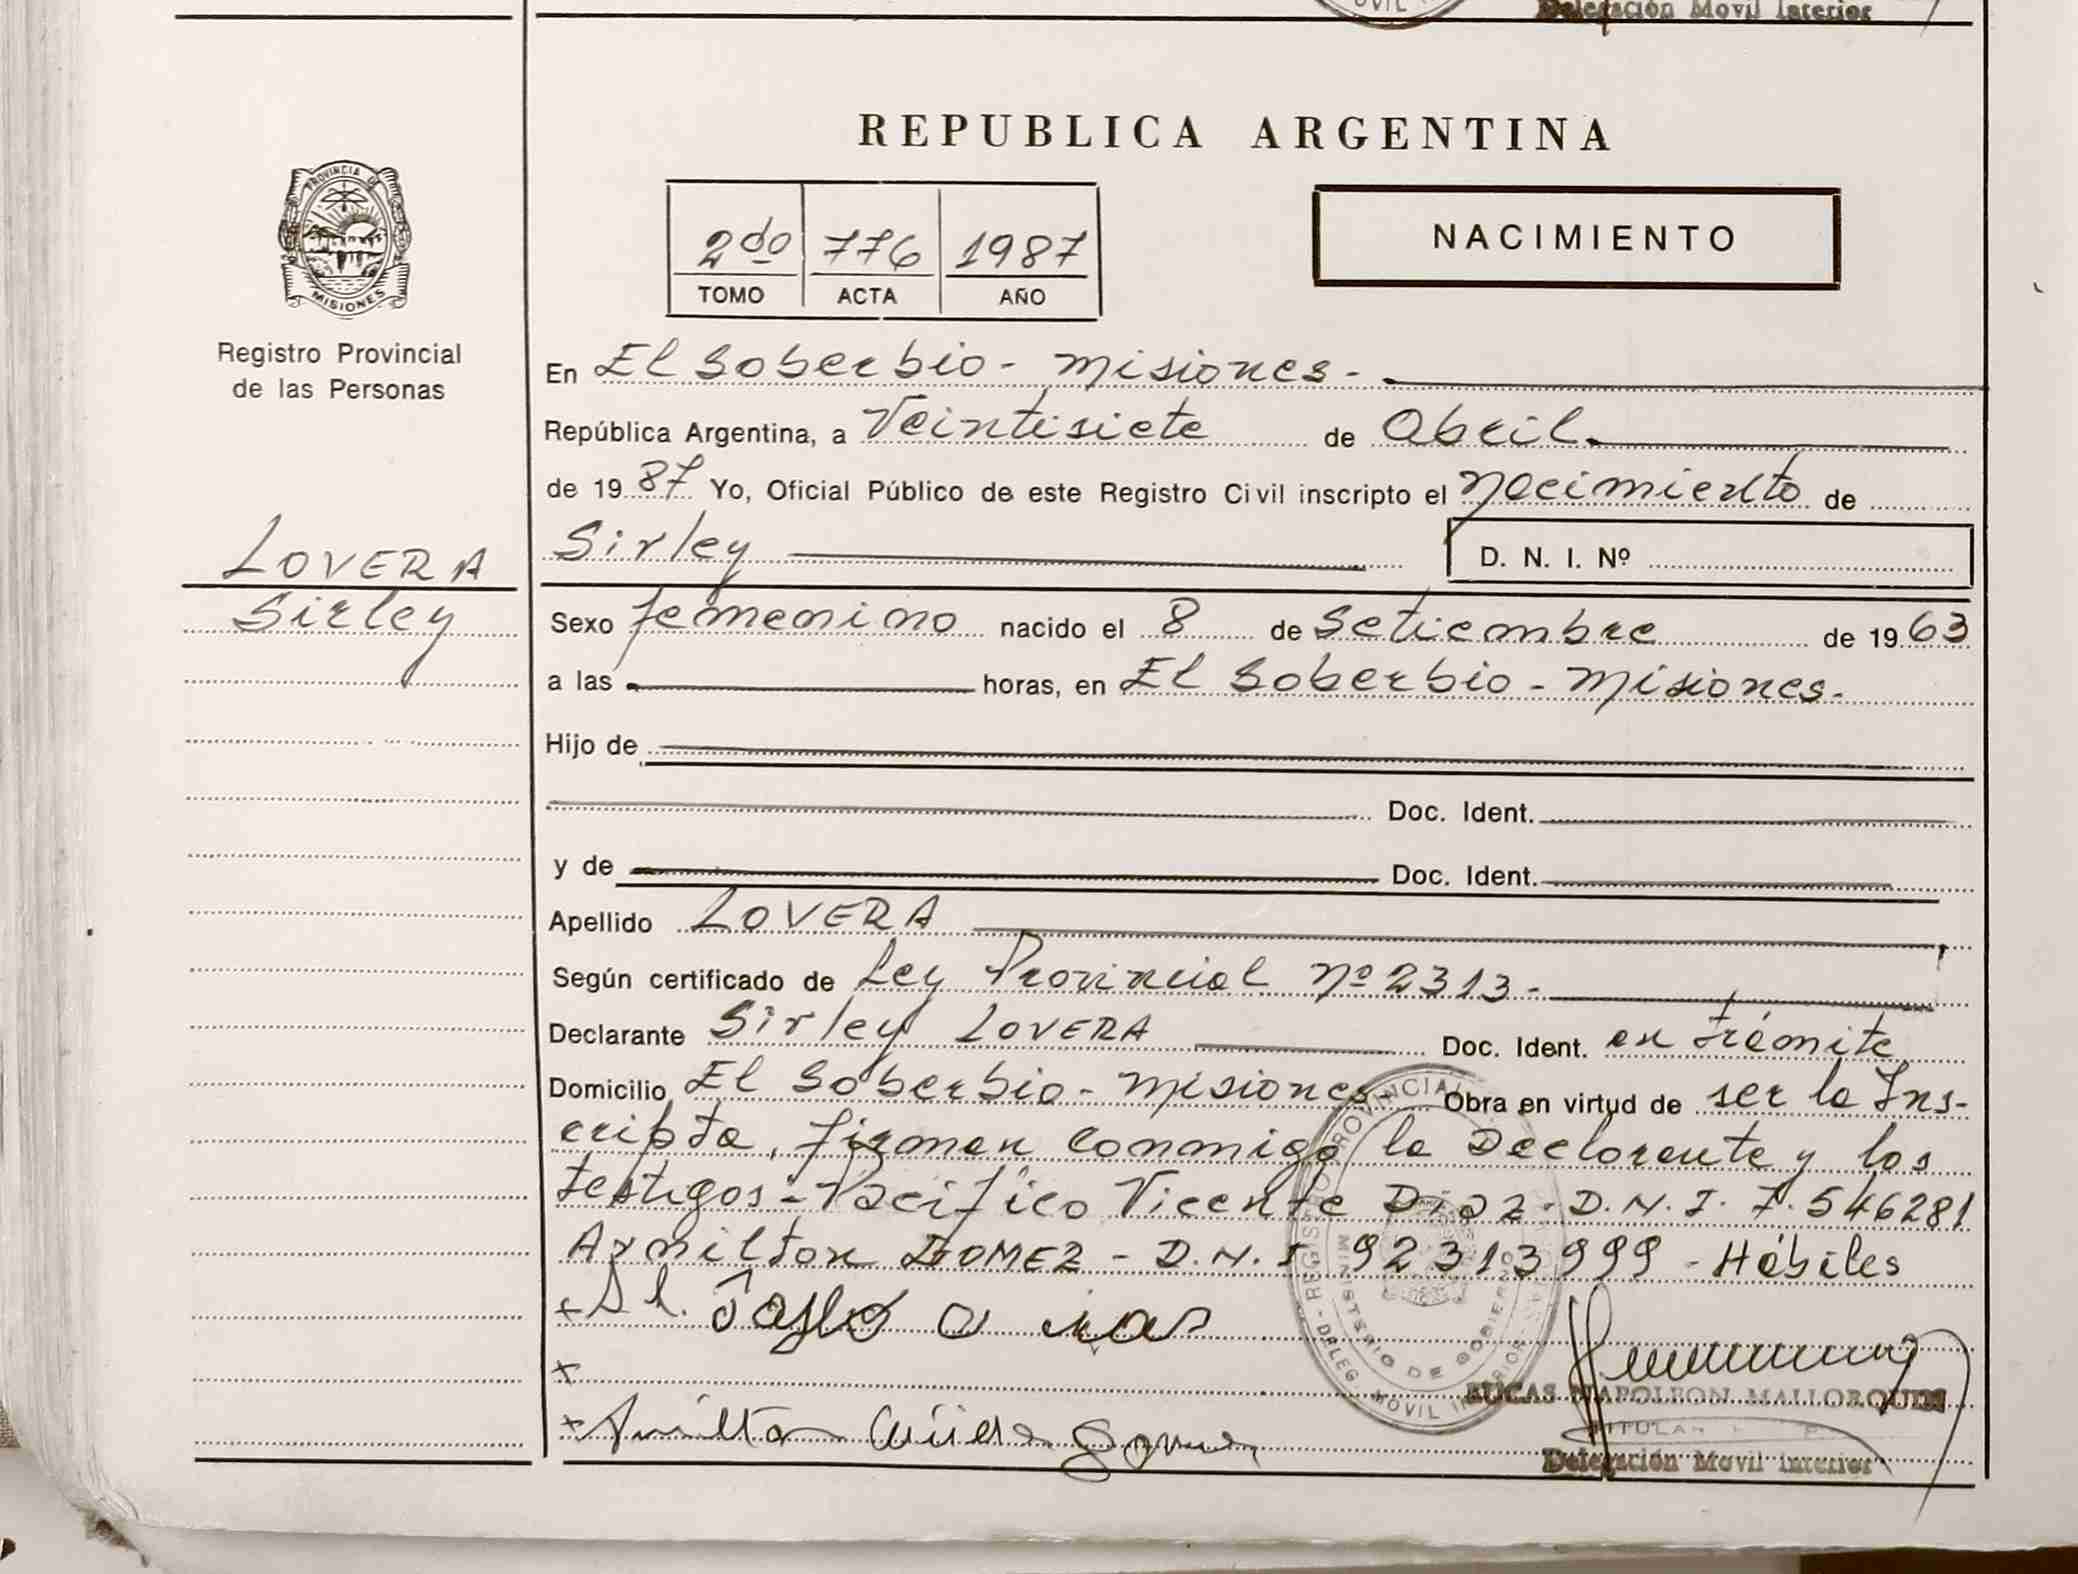 Delegación Movil Interior
REPUBLICA ARGENTINA
PROVINCIA DE
MISIONES
Registro Provincial
de las Personas
2do 776 1987
TOMO ACTA AÑO
NACIMIENTO
En El Soberbio - Misiones -
República Argentina, a Veintisiete de Abril
de 1987 Yo, Oficial Público de este Registro Civil inscripto el Nacimiento de
Sirley
D. N. I. Nº
LOVERA
Sirley
Sexo femenino nacido el 8 de Setiembre de 1963
a las horas, en El Soberbio - Misiones -
Hijo de
Doc. Ident.
y de Doc. Ident.
Apellido LOVERA
Según certificado de Ley Provincial Nº 2313 -
Declarante Sirley LOVERA Doc. Ident. en trámite
Domicilio El Soberbio - Misiones - Obra en virtud de ser la Ins-
cripta, firman conmigo la Declarante y los
testigos - Pacífico Vicente Díaz - D.N.I. 7.546281
Armilton GOMEZ - D.N.I 92313999 - Hábiles
REGISTRO PROVINCIAL
MINISTERIO DE GOBIERNO
DELEG. MOVIL INTERIOR
LUCAS NAPOLEON MALLORQUIN
TITULAR
Delegación Movil Interior